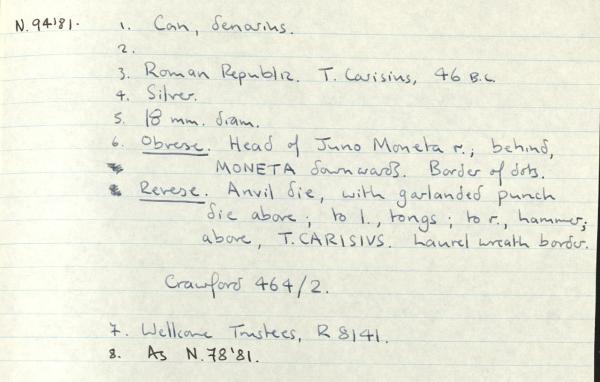 N.94'81.
1. Coin, denarius.
2.
3. Roman Republic. T. Carisius, 46 B.C.
4. Silver.
5. 18 mm. diam.
6. Obverse. Head of Juno Moneta r.; behind,
MONETA downwards. Border of dots.
Reverse. Anvil die, with garlanded punch
die above; to l., tongs; to r., hammer;
above, T.CARISIVS. Laurel wreath border.
Crawford 464/2.
7. Wellcome Trustees, R 8141.
8. As N.78'81.